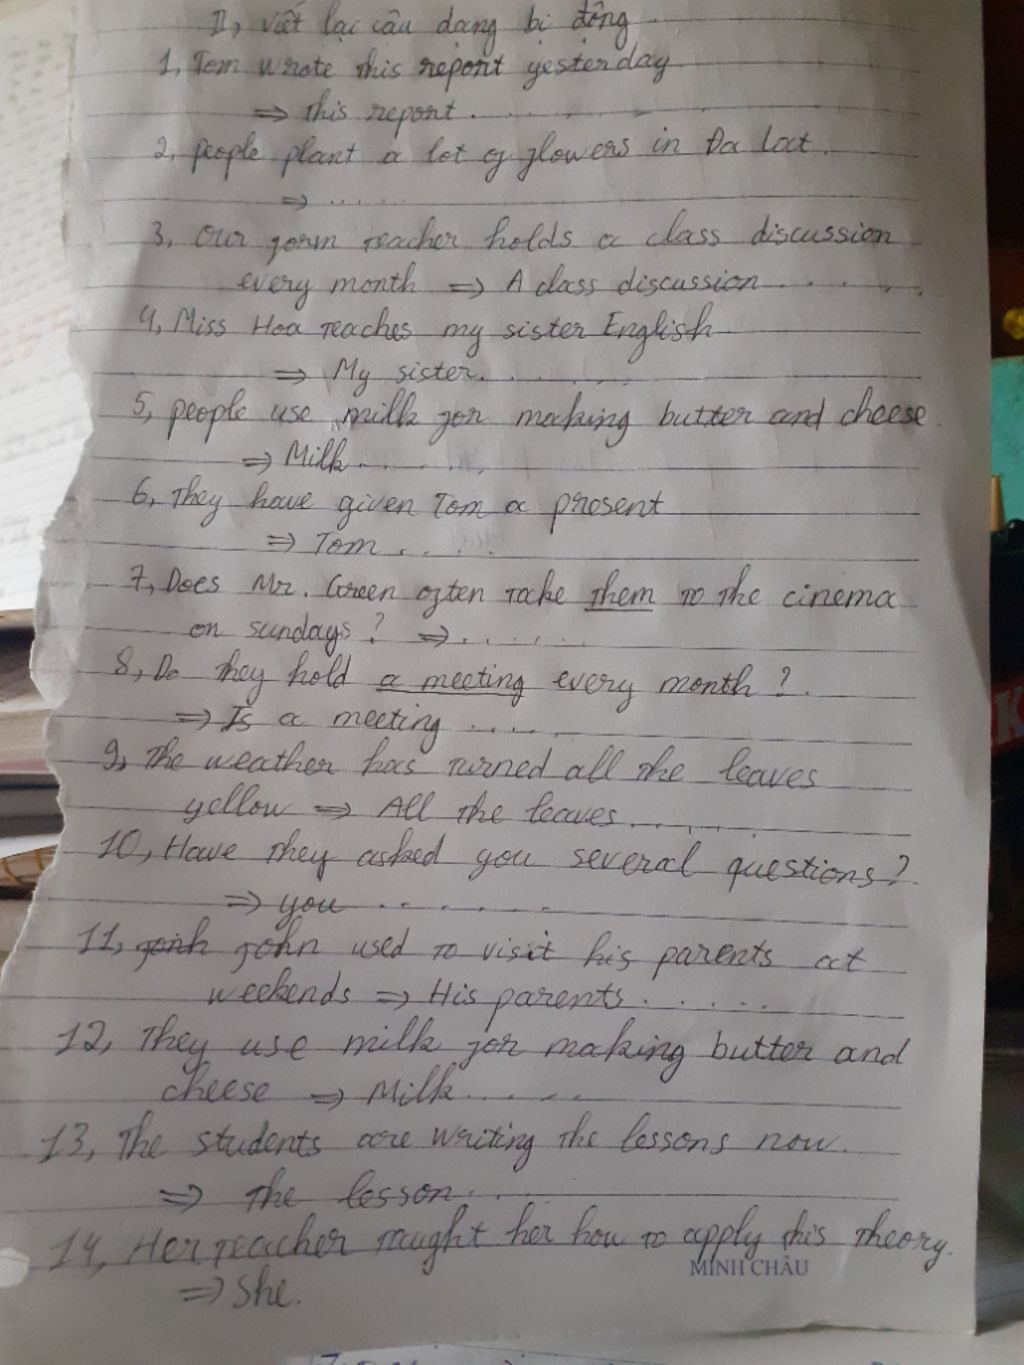 II, viết lại câu dạng bị động
1, Tom wrote this report yesterday
=> this report...........
2, people plant a lot of flowers in Đa Lat.
=> .....
3, Our form teacher holds a class discussion
every month => A class discussion.......
4, Miss Hoa teaches my sister English
=> My sister........
5, people use milk for making butter and cheese
=> Milk........
6, They have given Tom a present
=> Tom......
7, Does Mr. Green often take them to the cinema
on sundays? => ......
8, Do they hold a meeting every month?.
=> Is a meeting .....
9, The weather has turned all the leaves
yellow => All the leaves.......
10, Have they asked you several questions?
=> you ........
11, john used to visit his parents at
weekends => His parents......
12, They use milk for making butter and
cheese => Milk......
13, The students are writing the lessons now.
=> the lesson....
14, Her teacher taught her how to apply this theory.
MINH CHÂU
=> She.